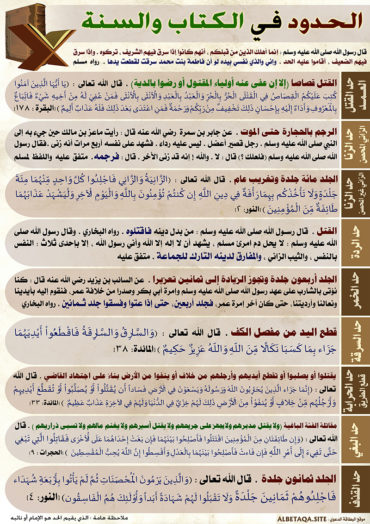 الحدود في الكتاب والسنة
قال رسول الله صلى الله عليه وسلم : إنما أهلك الذين من قبلكم ، أنهم كانوا إذا سرق فيهم الشريف ، تركوه . وإذا سرق
فيهم الضعيف ، أقاموا عليه الحد . وإني والذي نفسي بيده لو أن فاطمة بنت محمد سرقت لقطعت يدها . رواه مسلم
القتل قصاصا (إلا إن عفى عنه أولياء المقتول أو رضوا بالدية) . قال الله تعالى : (يَا أَيُّهَا الَّذِينَ آمَنُوا
كُتِبَ عَلَيْكُمُ الْقِصَاصُ فِي الْقَتْلَى الْحُرُّ بِالْحُرِّ وَالْعَبْدُ بِالْعَبْدِ وَالْأُنثَى بِالْأُنثَى فَمَنْ عُفِيَ لَهُ مِنْ أَخِيهِ شَيْءٌ فَاتِّبَاعٌ
بِالْمَعْرُوفِ وَأَدَاءٌ إِلَيْهِ بِإِحْسَانٍ ذَٰلِكَ تَخْفِيفٌ مِّن رَّبِّكُمْ وَرَحْمَةٌ فَمَنِ اعْتَدَىٰ بَعْدَ ذَٰلِكَ فَلَهُ عَذَابٌ أَلِيمٌ) (البقرة : ١٧٨)
الرجم بالحجارة حتى الموت . عن جابر بن سمرة رضي الله عنه قال : رأيت ماعز بن مالك حين جيء به إلى
النبي صلى الله عليه وسلم . رجل قصير أعضل . ليس عليه رداء . فشهد على نفسه أربع مرات أنه زنى . فقال رسول
الله صلى الله عليه وسلم (فلعلك ؟) قال : لا . والله ! إنه قد زنى الأخر . قال : فرجمه . متفق عليه واللفظ لمسلم
حد الزنا
الجلد مائة جلدة وتغريب عام . قال الله تعالى : (الزَّانِيَةُ وَالزَّانِي فَاجْلِدُوا كُلَّ وَاحِدٍ مِّنْهُمَا مِئَةَ
جَلْدَةٍ وَلَا تَأْخُذْكُم بِهِمَا رَأْفَةٌ فِي دِينِ اللَّهِ إِن كُنتُمْ تُؤْمِنُونَ بِاللَّهِ وَالْيَوْمِ الْآخِرِ وَلْيَشْهَدْ عَذَابَهُمَا
طَائِفَةٌ مِّنَ الْمُؤْمِنِينَ) (النور: ٢)
حد الزنا
القتل . قال رسول الله صلى الله عليه وسلم : من بدل دينه فاقتلوه . رواه البخاري . وقال رسول الله صلى
الله عليه وسلم : لا يحل دم امرئ مسلم . يشهد أن لا إله إلا الله وأني رسول الله . إلا بإحدى ثلاث : النفس
بالنفس . والثيب الزاني . والمفارق لدينه التارك للجماعة . متفق عليه
حد الردة
الجلد أربعون جلدة وتجوز الزيادة إلى ثمانين تعزيرا . عن السائب بن يزيد رضي الله عنه قال : كنا
نؤتى بالشارب على عهد رسول الله صلى الله عليه وسلم وإمرة أبي بكر وصدرا من خلافة عمر . فنقوم إليه بأيدينا
ونعالنا وأرديتنا . حتى كان آخر إمرة عمر . فجلد أربعين . حتى إذا عتوا وفسقوا جلد ثمانين . رواه البخاري
حد الخمر
قطع اليد من مفصل الكف . قال الله تعالى : (وَالسَّارِقُ وَالسَّارِقَةُ فَاقْطَعُوا أَيْدِيَهُمَا
جَزَاءً بِمَا كَسَبَا نَكَالًا مِّنَ اللَّهِ وَاللَّهُ عَزِيزٌ حَكِيمٌ) (المائدة: ٣٨)
حد السرقة
يقتلوا أو يصلبوا أو تقطع أيديهم وأرجلهم من خلاف أو ينفوا من الأرض بناء على اجتهاد القاضي . قال الله
تعالى : (إِنَّمَا جَزَاءُ الَّذِينَ يُحَارِبُونَ اللَّهَ وَرَسُولَهُ وَيَسْعَوْنَ فِي الْأَرْضِ فَسَادًا أَن يُقَتَّلُوا أَوْ يُصَلَّبُوا أَوْ تُقَطَّعَ أَيْدِيهِمْ
وَأَرْجُلُهُم مِّنْ خِلَافٍ أَوْ يُنفَوْا مِنَ الْأَرْضِ ذَٰلِكَ لَهُمْ خِزْيٌ فِي الدُّنْيَا وَلَهُمْ فِي الْآخِرَةِ عَذَابٌ عَظِيمٌ) (المائدة: ٣٣)
حد الحرابة
قطع الطريق
مقاتلة الفئة الباغية (ولا يقتل مدبرهم ولا يجهز على جريحهم ولا يقتل أسيرهم ولا يغنم مالهم ولا تسبى ذراريهم) . قال
الله تعالى : (وَإِن طَائِفَتَانِ مِنَ الْمُؤْمِنِينَ اقْتَتَلُوا فَأَصْلِحُوا بَيْنَهُمَا فَإِن بَغَتْ إِحْدَاهُمَا عَلَى الْأُخْرَىٰ فَقَاتِلُوا الَّتِي تَبْغِي
حَتَّىٰ تَفِيءَ إِلَىٰ أَمْرِ اللَّهِ فَإِن فَاءَتْ فَأَصْلِحُوا بَيْنَهُمَا بِالْعَدْلِ وَأَقْسِطُوا إِنَّ اللَّهَ يُحِبُّ الْمُقْسِطِينَ) (الحجرات : ٩)
حد البغي
الجلد ثمانون جلدة . قال الله تعالى : (وَالَّذِينَ يَرْمُونَ الْمُحْصَنَاتِ ثُمَّ لَمْ يَأْتُوا بِأَرْبَعَةِ شُهَدَاءَ
فَاجْلِدُوهُمْ ثَمَانِينَ جَلْدَةً وَلَا تَقْبَلُوا لَهُمْ شَهَادَةً أَبَدًا وَأُولَٰئِكَ هُمُ الْفَاسِقُونَ) (النور: ٤)
حد القذف
موقع البطاقة الدعوي ALBETAQA.SITE
ملاحظة هامة : الذي يقيم الحد هو الإمام أو نائبه